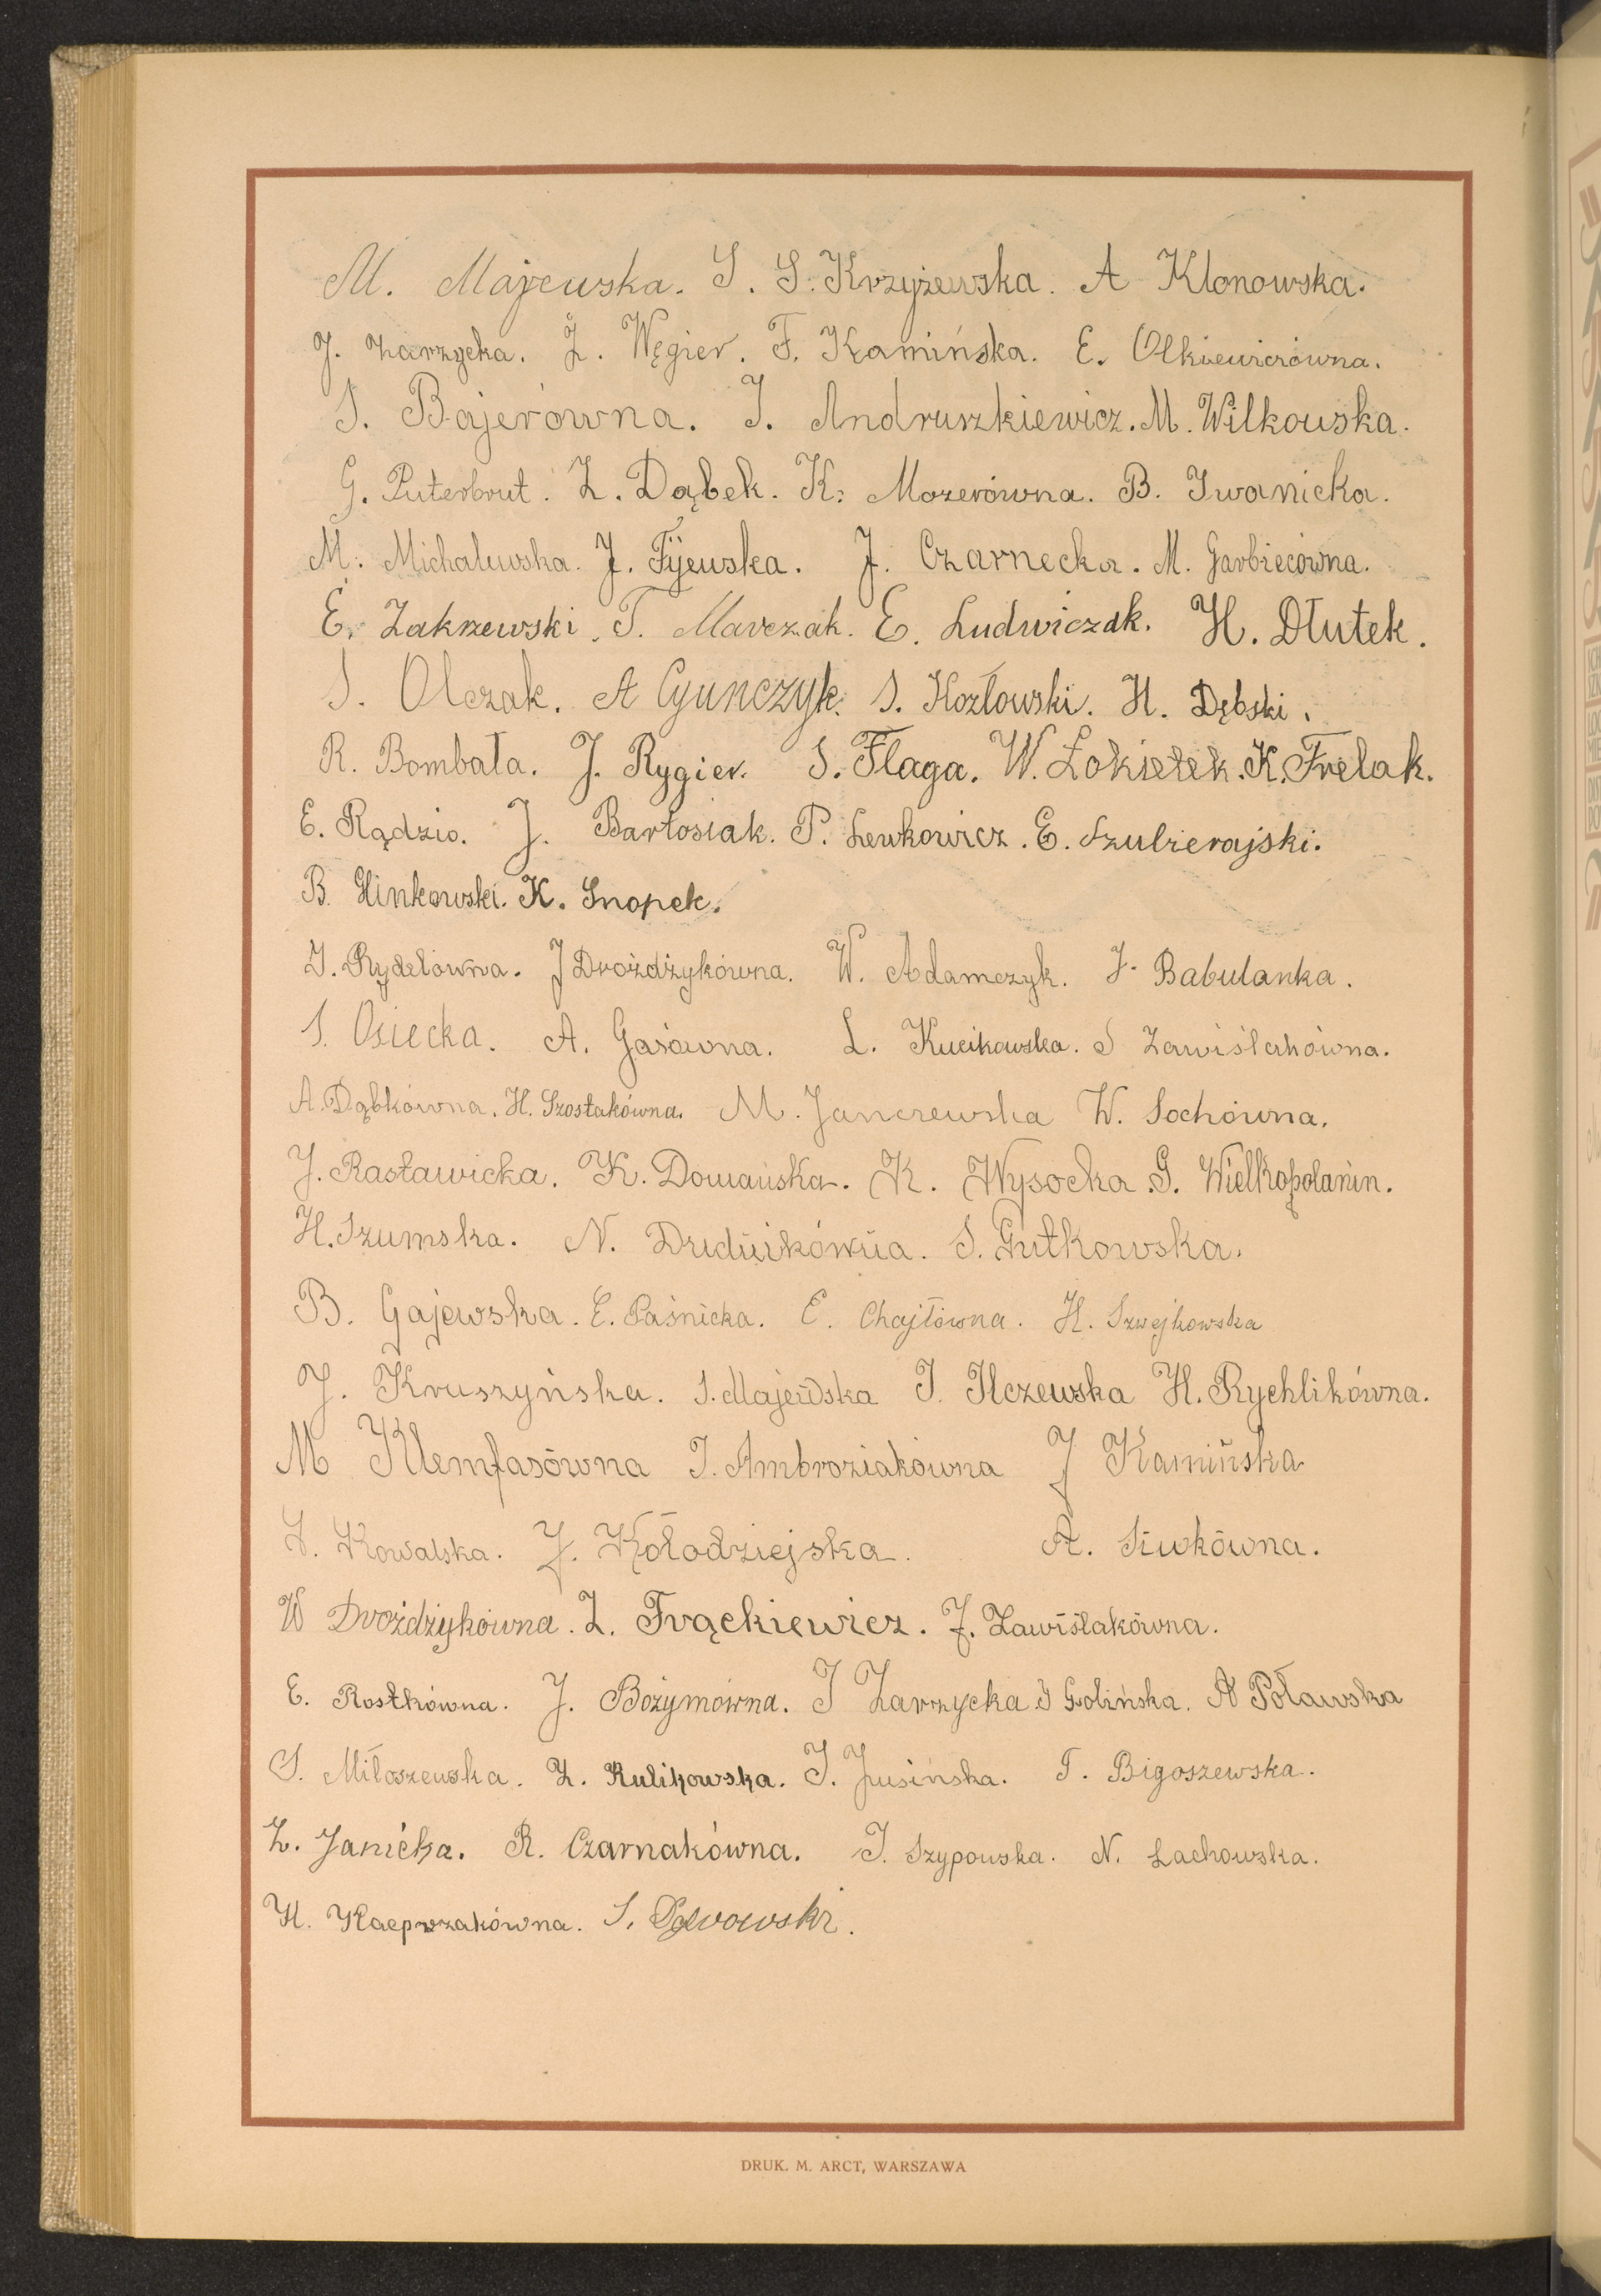 M. Majewska. S. S. Krzyżewska. A Klonowska.
J. Zarzycka. Z. Węgier. F. Kamińska. E. Olkiewiczówna.
S. Bajerówna. I. Andruszkiewicz. M. Wilkowska.
G. Puterbrut. Z. Dąbek. K. Mozerówna. B. Iwanicka.
M. Michalewska. J. Fijewska. J. Czarnecka. M. Garbiecówna.
E. Zakrzewski. T. Marczak. E. Ludwiczak. H. Dłutek.
S. Olczak. A Cyunczyk. S. Kozłowski. H. Dębski.
R. Bombała. J. Rygier. S. Flaga. W. Łokietek. K. Frelak.
E. Rądzio. J. Bartosiak. P. Lewkowicz. E. Szubierajski.
B. Glinkowski. K. Snopek.
J. Rydelówna. J Drożdżykówna. W. Adamczyk. J. Babulanka.
S. Osiecka. A. Gasówna. L. Kucikowska. S Zawiślakówna.
A. Dąbkówna. H. Szostakówna. M. Janczewska W. Sochówna.
J. Rasławicka. K. Domańska. K. Wysocka. G. Wielkopolanin.
H. Szumska. N. Dudzikówna. S. Gutkowska.
B. Gajewska. E. Paśnicka. E. Chajtówna. H. Szwejkowska
J. Kruszyńska. S. Majewska I. Ilczewska H. Rychlikówna.
M Klemfasówna I. Ambroziakówna J Kamińska
S. Kowalska. J. Kołodziejska. A. Siwkówna.
W Drożdżykówna. Z. Frąckiewicz. J. Zawiślakówna.
E. Rostkówna. J. Bożymówna. I Zarzycka I Golińska. A Poławska
S. Miłoszewska. Z. Kulikowska. I. Jusińska. T. Bigoszewska.
Z. Janicka. R. Czarnakówna. I. Szypowska. N. Lachowska.
H. Kacprzakówna. S.
DRUK. M. ARCT, WARSZAWA